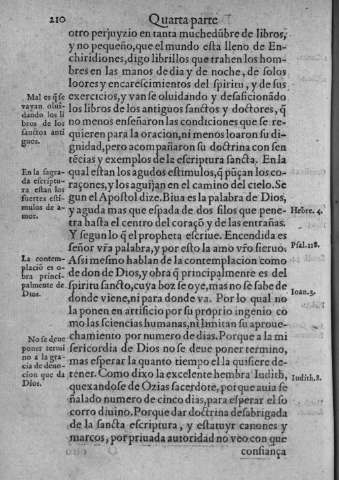 210 Quarta parte
otro perjuyzio en tanta muchedũbre de libros,
y no pequeño, que el mundo esta lleno de En-
chiridiones, digo librillos que trahen los hom-
bres en las manos de dia y de noche, de solos
loores y encarescimientos del spiritu, y de sus
exercicios, y van se oluidando y desaficionãdo
los libros de los antiguos sanctos y doctores, q̃
no menos enseñaron las condiciones que se re-
quieren para la oracion, ni menos loaron su di-
gnidad, pero acompañaron su doctrina con sen
tẽcias y exemplos de la escriptura sancta. En la
qual estan los agudos estimulos, q̃ pũçan los co-
raçones, y los aguijan en el camino del cielo. Se
gun el Apostol dize. Biua es la palabra de Dios,
y aguda mas que espada de dos filos que pene-
tra hasta el centro del coraçõ y de las entrañas.
Y segun lo q̃ el propheta escriue. Encendida es
señor vr̃a palabra, y por esto la amo vr̃o sieruo.
Assi mesmo hablan de la contemplacion como
de don de Dios, y obra q̃ principalmente es del
spiritu sancto, cuya boz se oye, mas no se sabe de
donde viene, ni para donde va. Por lo qual no
la ponen en artificio por su proprio ingenio co
mo las sciencias humanas, ni limitan su aproue-
chamiento por numero de dias. Porque a la mi
sericordia de Dios no se deue poner termino,
mas esperar la quanto tiempo ella quisiere de-
tener. Como dixo la excelente hembra Iudith,
quexandose de Ozias sacerdote, porque auia se
ñalado numero de cinco dias, para esperar el so
corro diuino. Porque dar doctrina desabrigada
de la sancta escriptura, y estatuyr canones y
marcos, por priuada autoridad no veo con que
confiança
Mal es q̃ se
vayan olui-
dando los li
bros de los
sanctos anti
guos.
En la sagra-
da escriptu-
ra estan los
fuertes esti-
mulos de a-
mor.
La contem-
placiõ es o-
bra princi-
palmente de
Dios.
No se deue
poner termi
no a la gra-
cia de deuo-
cion que da
Dios.
Hebre. 4.
Psal. 118.
Ioan. 3.
Iudith. 8.